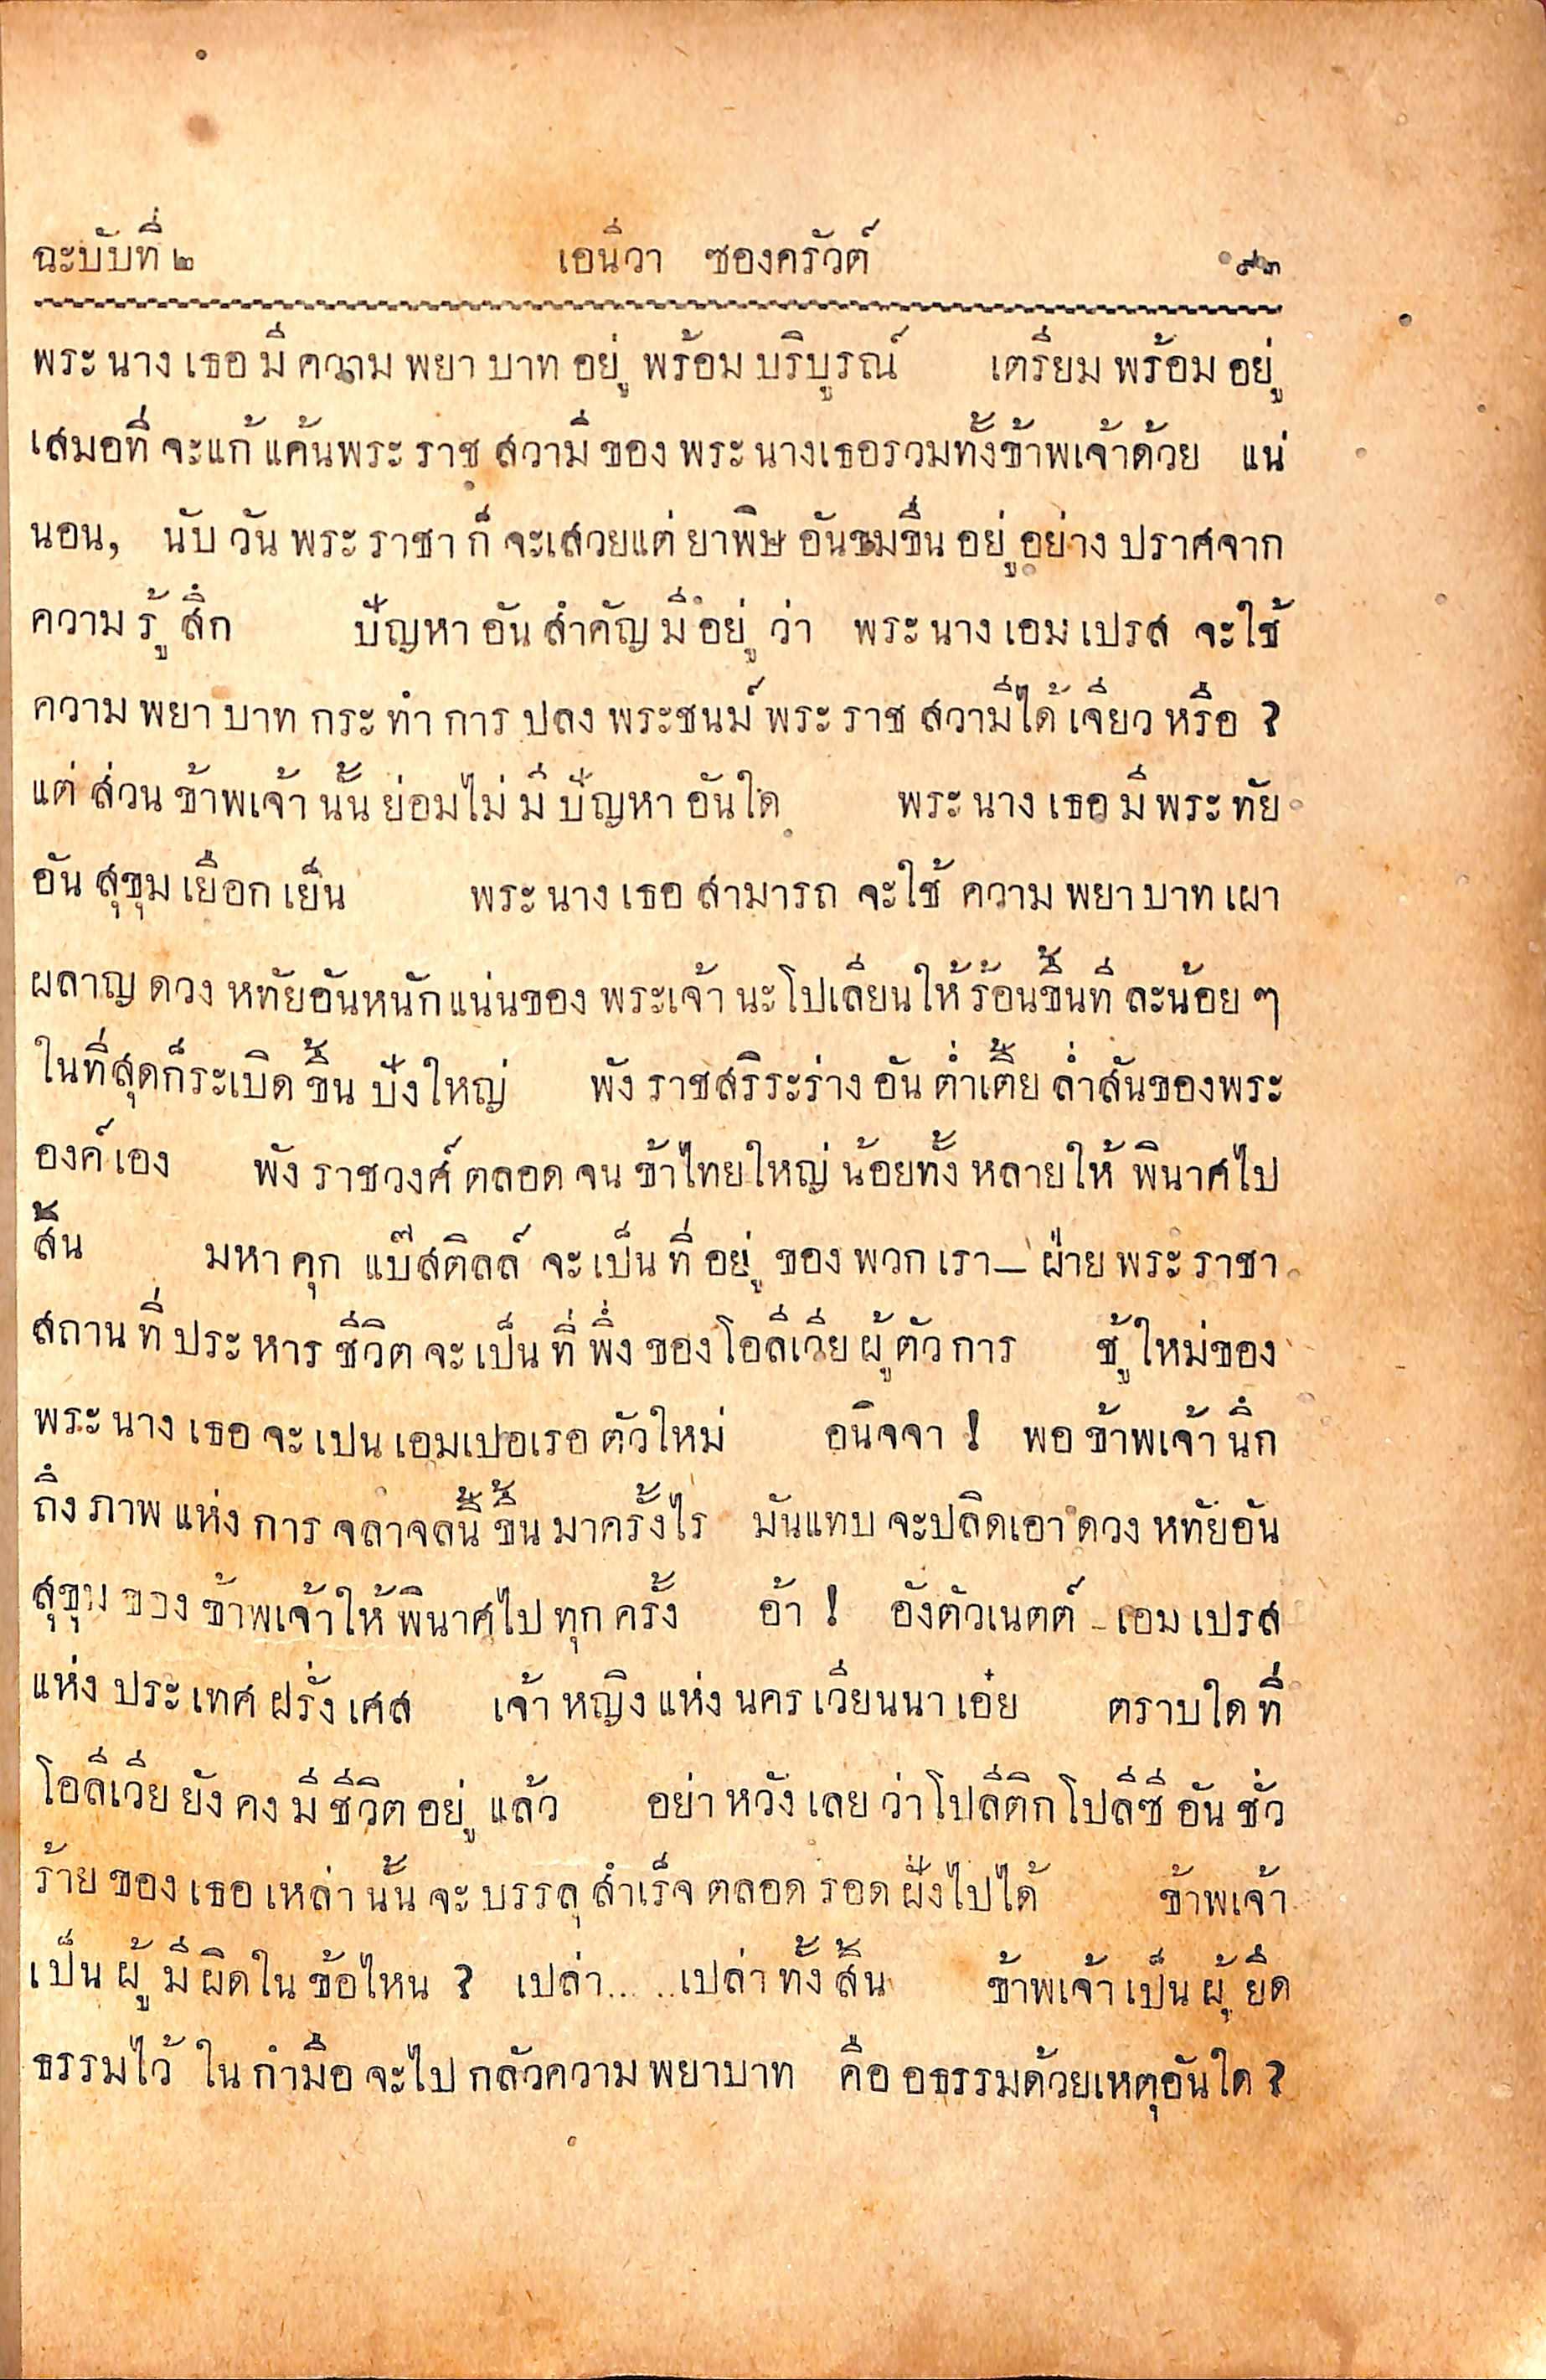 ฉะบับที่ ๒ เอนิวา ซองครัวต์ ๙๓
พระนางเธอมีความพยาบาทอยู่พร้อมบริบูรณ์ เตรียมพร้อมอยู่
เสมอที่จะแก้แค้นพระราชสวามีของพระนางเธอรวมทั้งข้าพเจ้าด้วย แน่
นอน, นับวันพระราชาก็จะเสวยแต่ยาพิษอันขมขื่นอยู่อย่างปราศจาก
ความรู้สึก ปัญหาอันสำคัญมีอยู่ว่า พระนางเอมเปรส จะใช้
ความพยาบาทกระทำการปลงพระชนม์พระราชสวามีได้เจียวหรือ ?
แต่ส่วนข้าพเจ้านั้นย่อมไม่มีปัญหาอันใด พระนางเธอมีพระทัย
อันสุขุมเยือกเย็น พระนางเธอสามารถจะใช้ความพยาบาทเผา
ผลาญดวงหทัยอันหนักแน่นของพระเจ้านะโปเลียนให้ร้อนขึ้นทีละน้อย ๆ
ในที่สุดก็ระเบิดขึ้นปังใหญ่ พังราชสรีระร่างอันต่ำเตี้ยล่ำสันของพระ
องค์เอง พังราชวงศ์ตลอดจนข้าไทยใหญ่น้อยทั้งหลายให้พินาศไป
สิ้น มหาคุกแบ๊สติลล์จะเป็นที่อยู่ของพวกเรา—ฝ่ายพระราชา
สถานที่ประหารชีวิตจะเป็นที่พึ่งของโอลิเวียผู้ตัวการ ชู้ใหม่ของ
พระนางเธอจะเปนเอมเปอเรอตัวใหม่ อนิจจา ! พอข้าพเจ้านึก
ถึงภาพแห่งการจลาจลนี้ขึ้นมาครั้งไร มันแทบจะปลิดเอาดวงหทัยอัน
สุขุมของข้าพเจ้าให้พินาศไปทุกครั้ง อ้า ! อังตัวเนตต์ - เอมเปรส
แห่งประเทศฝรั่งเศส เจ้าหญิงแห่งนครเวียนนาเอ๋ย ตราบใดที่
โอลิเวียยังคงมีชีวิตอยู่แล้ว อย่าหวังเลยว่าโปลิติกโปลิซีอันชั่ว
ร้ายของเธอเหล่านั้นจะบรรลุสำเร็จตลอดรอดฝั่งไปได้ ข้าพเจ้า
เป็นผู้มีผิดในข้อไหน ? เปล่า.....เปล่าทั้งสิ้น ข้าพเจ้าเป็นผู้ยึด
ธรรมไว้ในกำมือจะไปกลัวความพยาบาท คืออธรรมด้วยเหตุอันใด ?